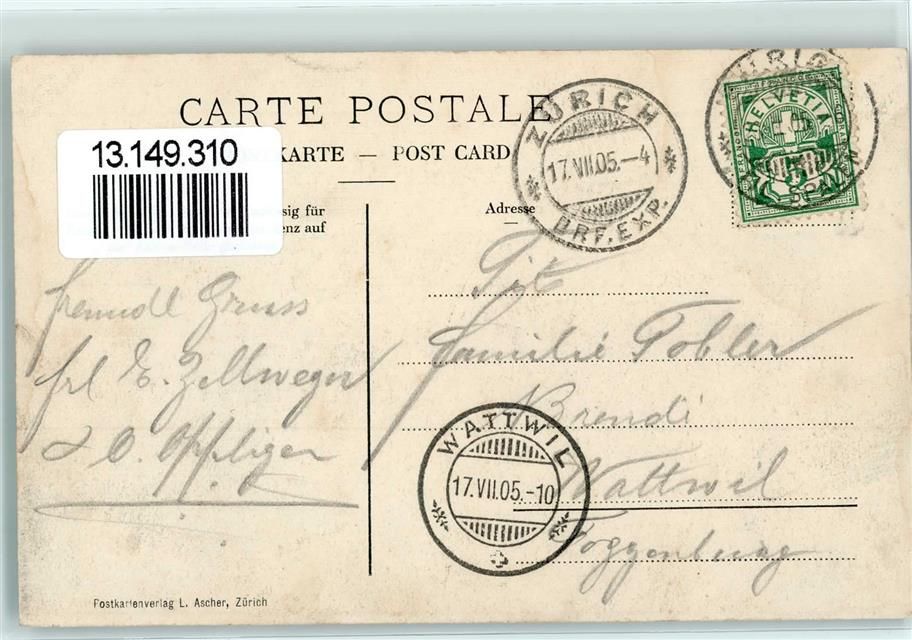 CARTE POSTALE
KARTE — POST CARD
13.149.310
sig für
enz auf
Adresse
ZÜRICH
17.VII.05.–4
BRF.EXP.
HELVETIA
freundl Gruss
frl E. Zellweger
& O. Oppliger
Tit
Familie Tobler
Brendi
Wattwil
Toggenburg
WATTWIL
17.VII.05.–10
Postkartenverlag L. Ascher, Zürich